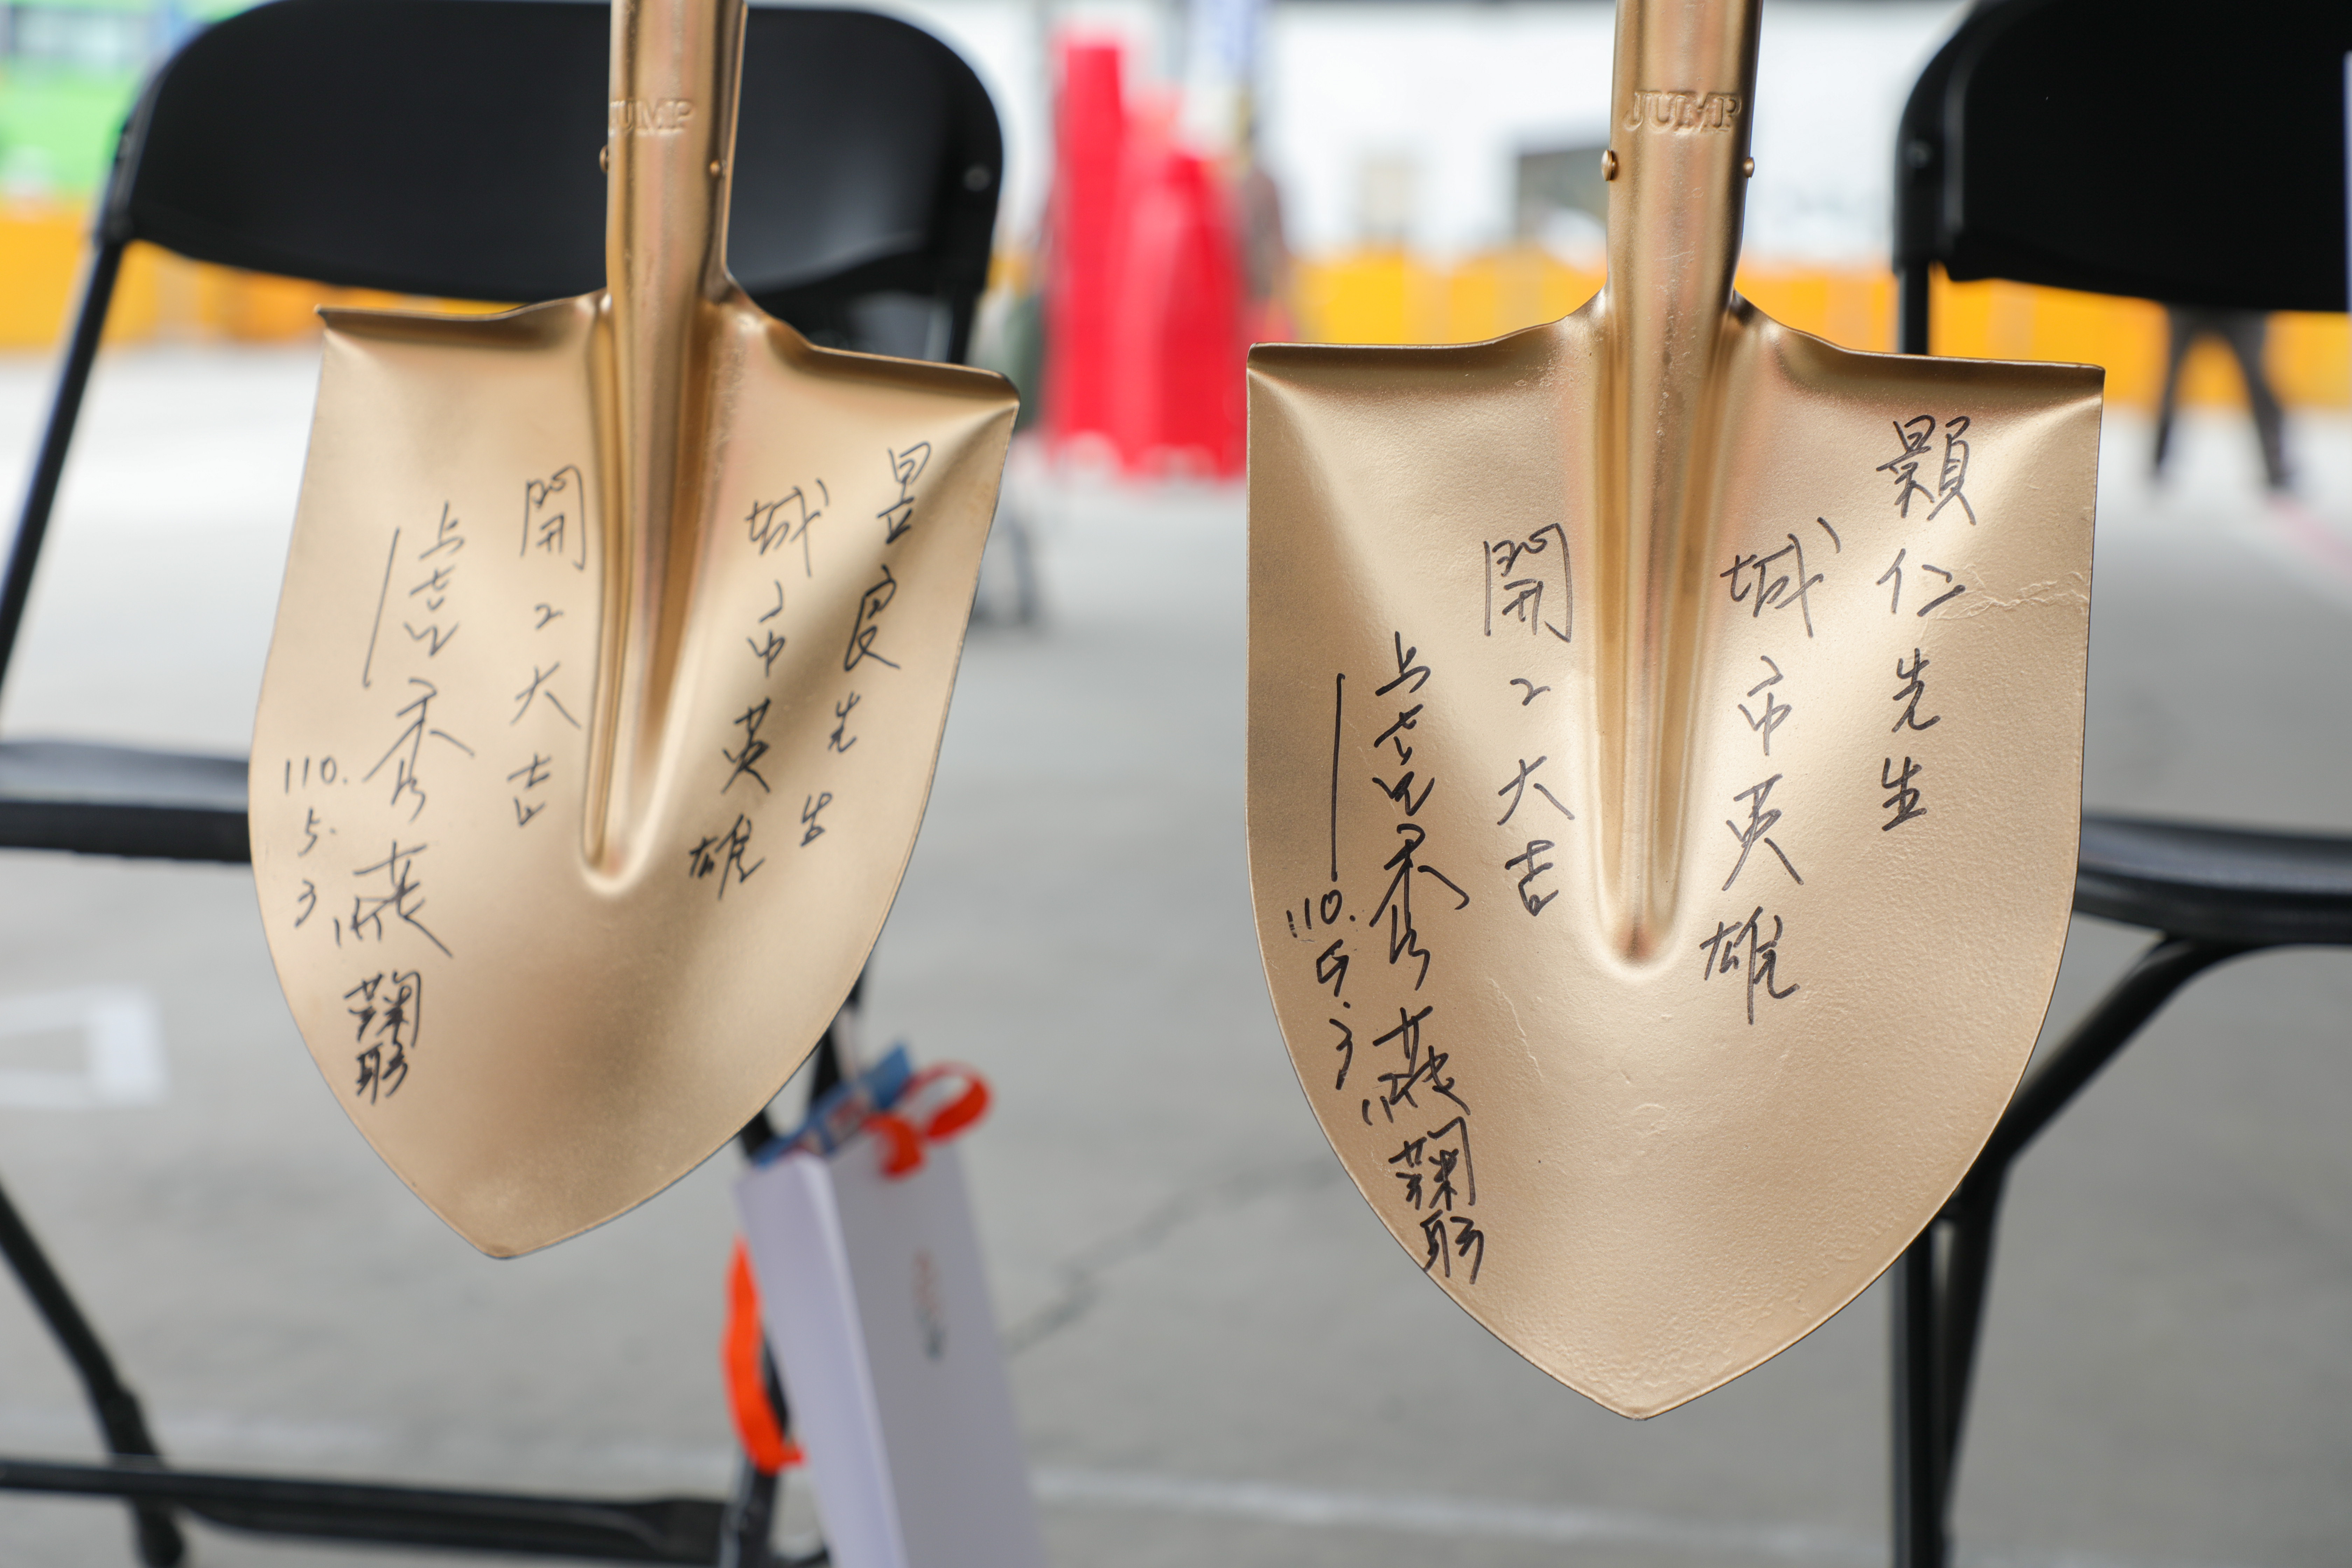 JUMP
昱良先生
城市英雄
開工大吉
盧秀燕鞠躬
110.5.3
JUMP
仁先生
城市英雄
開工大吉
盧秀燕鞠躬
110.5.3